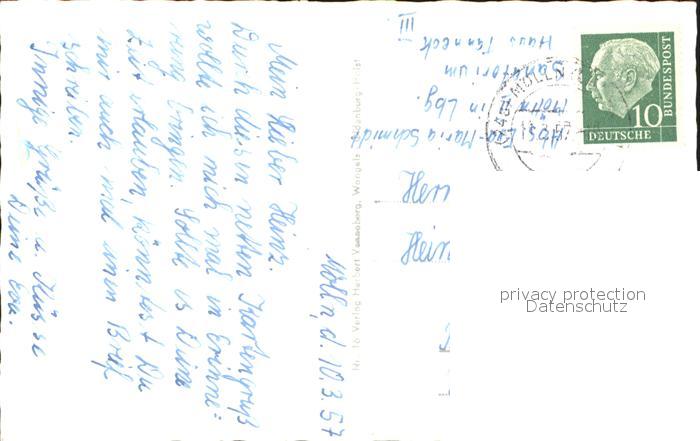 Mölln, d. 10.3.57
Mein lieber Heinz.
Durch diesen netten Kartengruß
wollte ich mich mal in Erinne=
rung bringen. Sollte es Deine
Zeit erlauben, könntest Du
mir auch mal einen Brief
schreiben.
Innige Grüße u. Küsse
Deine Eva.
Abs. Eva-Maria Schmidt
Mölln in Lbg.
Sanatorium
Haus Tanneck
III
Herr
Hein
DEUTSCHE
BUNDESPOST
10
MÖLLN
Nr. 16 Verlag Herbert
privacy protection
Datenschutz